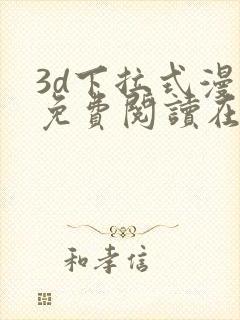 3d下拉式漫
免費閱讀在
和孝信